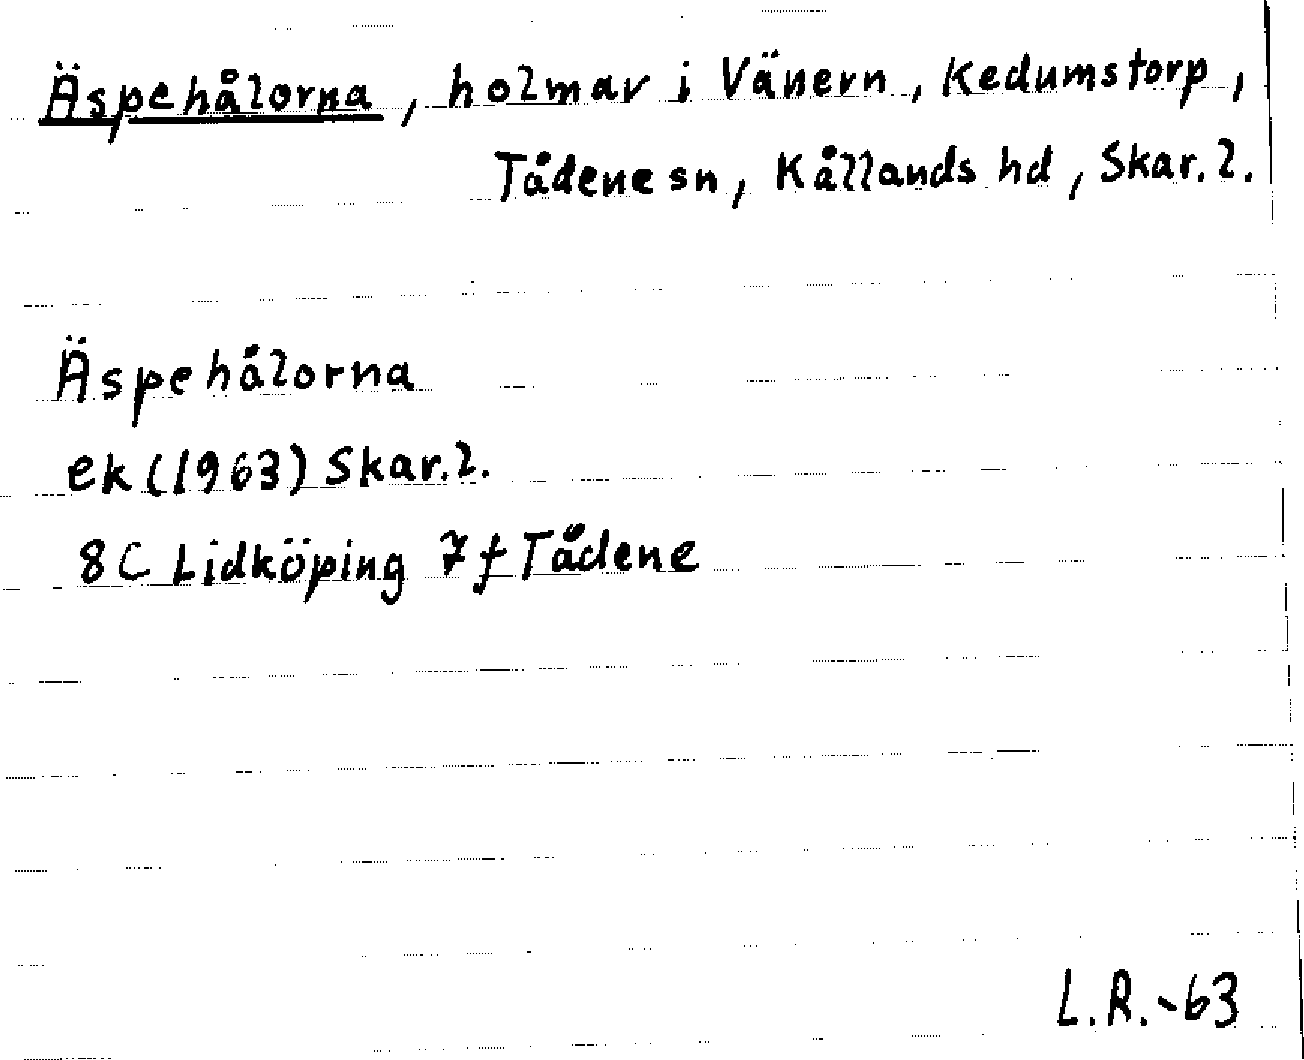 Äspehålorna, holmar i Vänern, Kedumstorp,
Tådene sn, Kållands hd, Skar. l.
Äspehålorna
ek (1963) Skar. l.
8C Lidköping 7f Tådene
L.R. -63